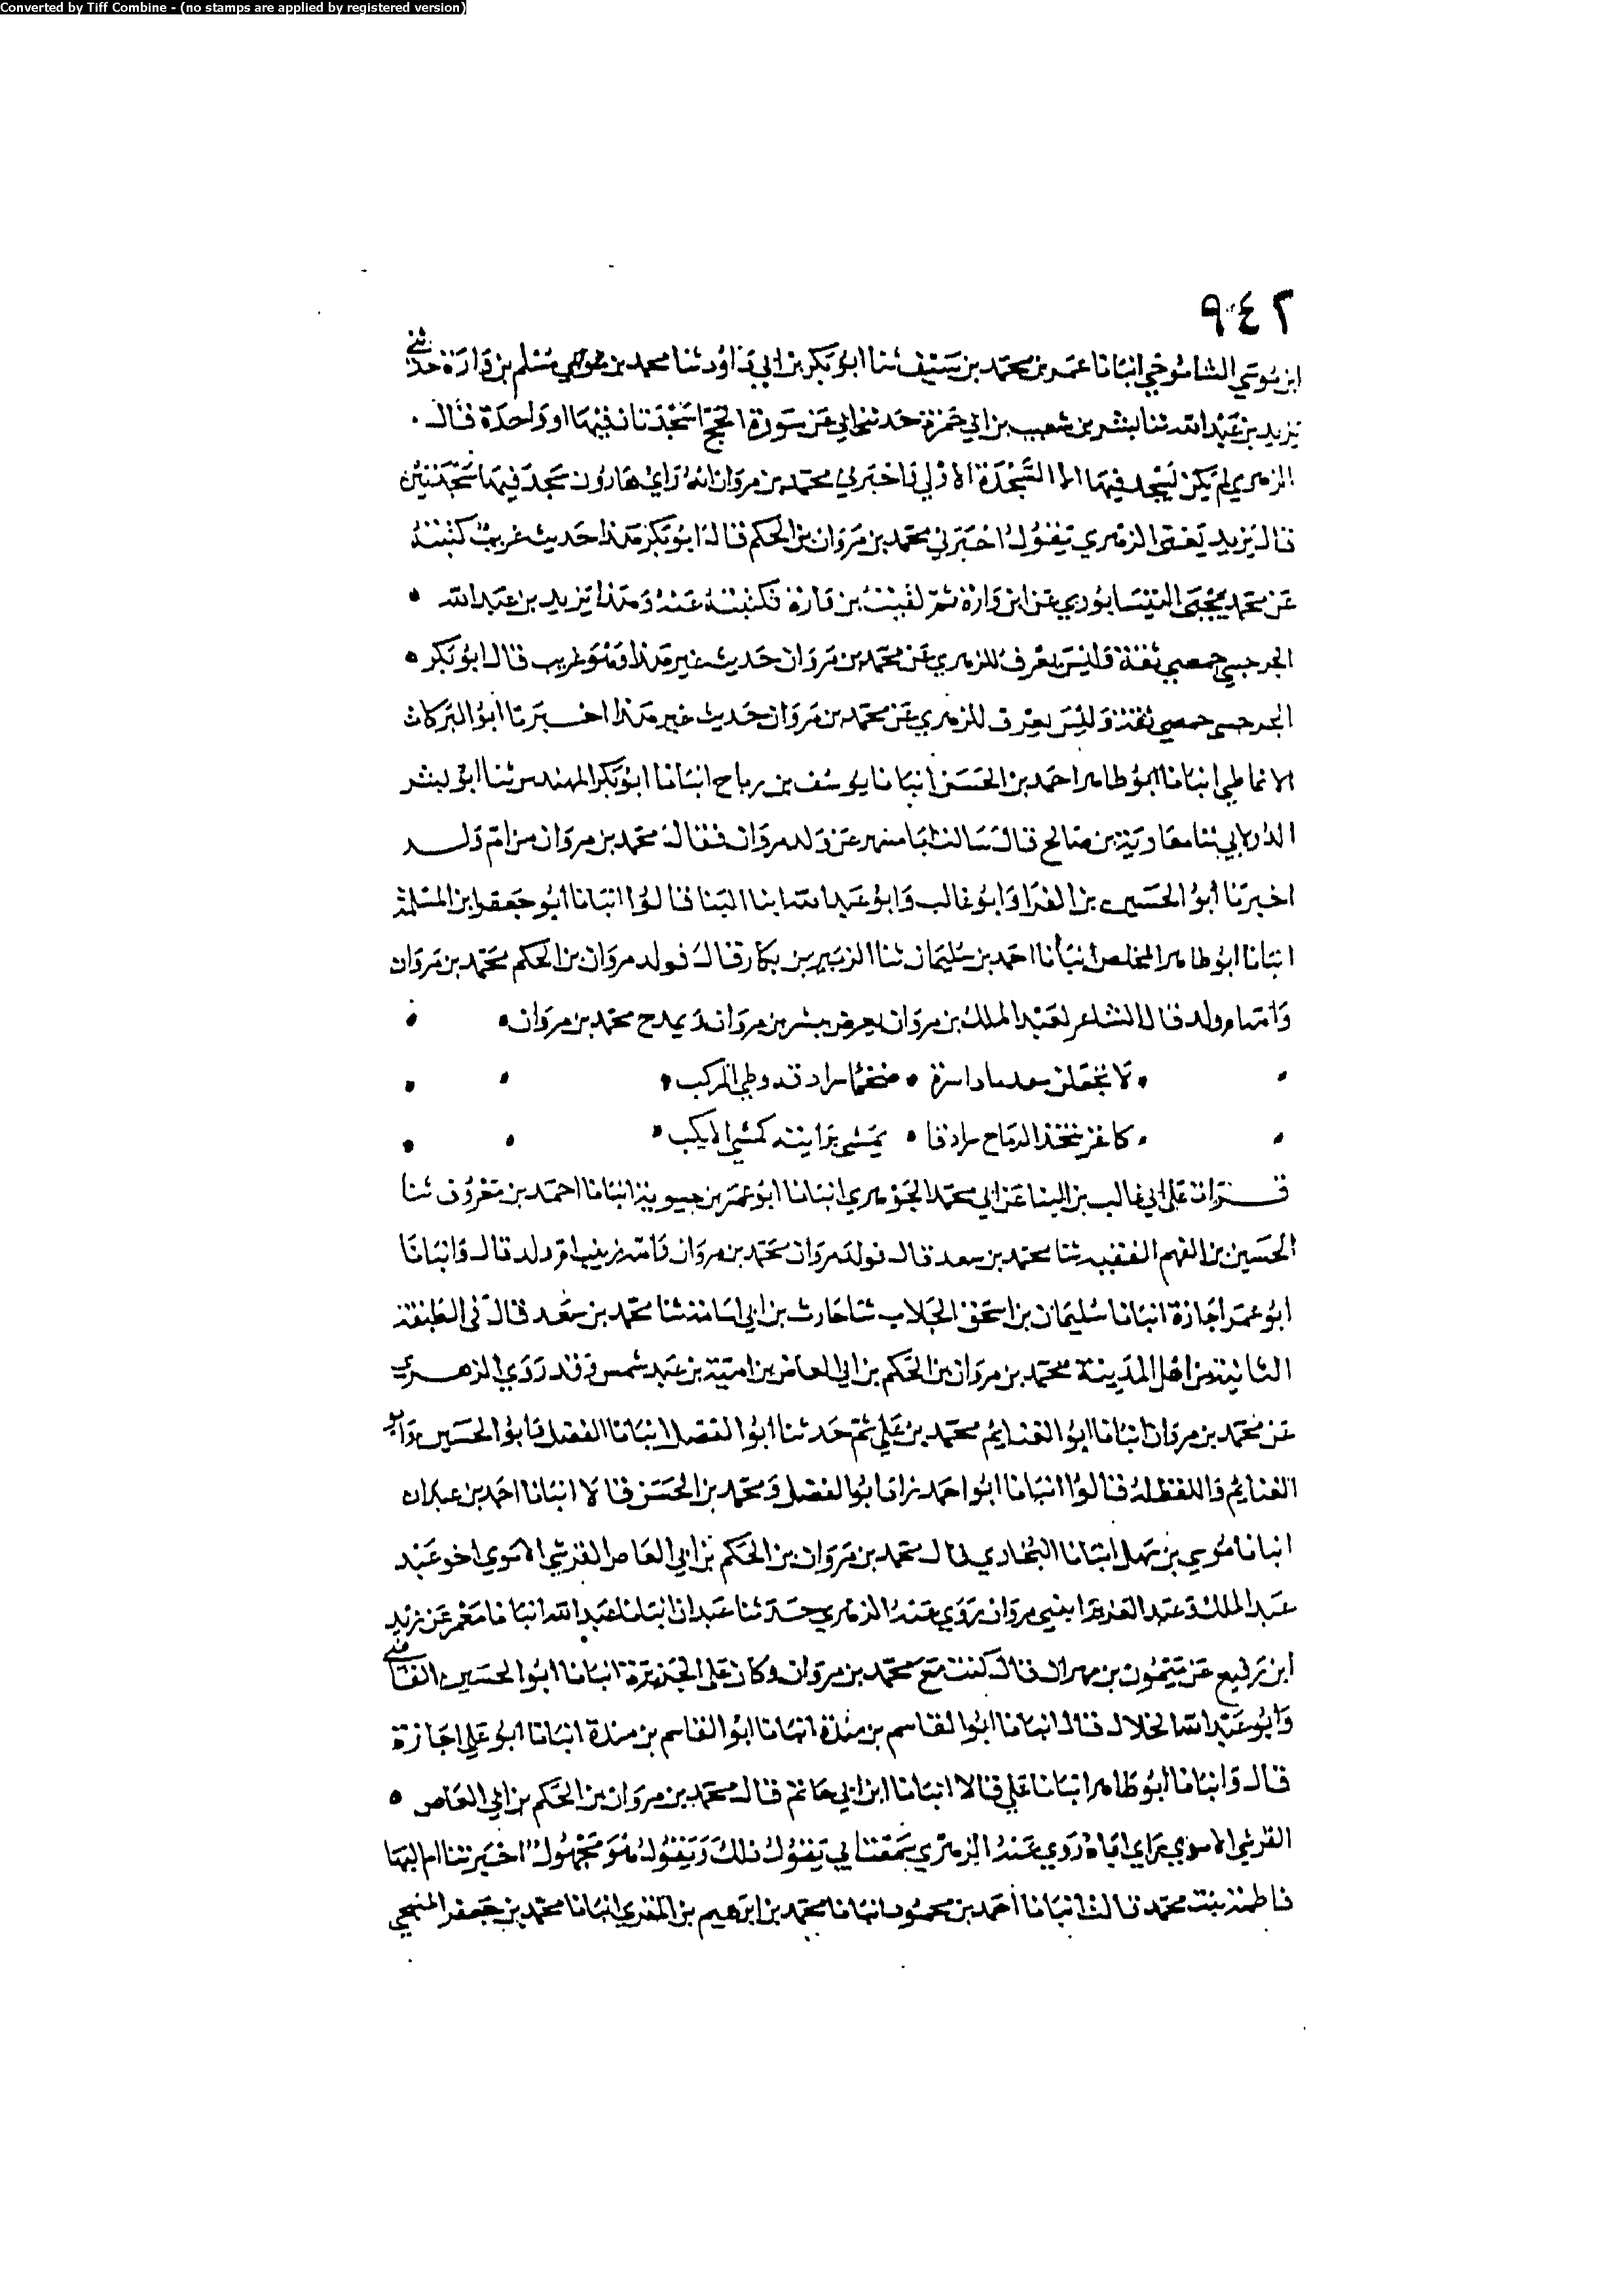 Converted by Tiff Combine - (no stamps are applied by registered version)
٩٤٢
ابن موسي الشاموخي انبانا عمر بن محمد بن سيف ثنا ابو بكر بن ابي داود ثنا محمد بن مسلم بن وارة حدثني
يزيد بن عبد الله ثنا بشر بن شعيب بن ابي حمزة حدثني ابي عن سورة الحج اسجدتان فيها او واحدة قال
الزهري لم يكن يسجد فيها الا السجدة الاولي فاخبرني محمد بن مروان انه راي هارون سجد فيها سجدتين
قال يزيد يعني الزهري يقول اخبرني محمد بن مروان بن الحكم قال ابو بكر هذا حديث غريب كتبته
عن محمد يحيى النيسابوري عن ابن وارة ثم لقيت بن وارة فكتبته عنه وهذا يزيد بن عبد الله
الجرجسي حمصي ثقة وليس يعرف للزهري عن محمد بن مروان حديث غير هذا وهو غريب قال ابو بكر
الجرجسي حمصي ثقة وليس يعرف للزهري عن محمد بن مروان حديث غير هذا اخبرنا ابو البركات
الانماطي انبانا ابو طاهر احمد بن الحسن انبانا يوسف بن رباح انبانا ابو بكر المهندس ثنا ابو بشر
الدولابي ثنا معاوية بن صالح قال سالت ابا مسهر عن ولد مروان فقال محمد بن مروان من ام ولد
اخبرنا ابو الحسين بن الفرا وابو غالب وابو عبد الله ابنا البنا قالوا انبانا ابو جعفر ابن المسلمة
انبانا ابو طاهر المخلص انبانا احمد بن سليمان ثنا الزبير بن بكار قال فولد مروان بن الحكم محمد بن مروان
وامه ام ولد قال الشاعر لعبد الملك بن مروان يعرض ببشر بن مروان ويمدح محمد بن مروان
لا تجعلن ضخما سرادقه وطي المركب
كاغر يتخذ الرماح سرادقا يمشي برايته كمشي الانكب
قرات علي ابي غالب بن البنا عن ابي محمد الجوهري انبانا ابو عمر بن حيويه انبانا احمد بن معروف ثنا
الحسين بن الفهم الفقيه ثنا محمد بن سعد قال فولد مروان محمد بن مروان وامه زينب ام ولد قال وانبانا
ابو عمر اجازة انبانا سليمان بن اسحق الجلاب ثنا حارث بن ابي اسامة ثنا محمد بن سعد قال في الطبقة
الثانية من اهل المدينة محمد بن مروان بن الحكم بن ابي العاص بن امية بن عبد شمس وقد روي الزهري
عن محمد بن مروان انبانا ابو الغنايم محمد بن علي ثم حدثنا ابو الفضل انبانا الفضل وابو الحسين وابو
الغنايم واللفظ له قالوا انبانا ابو احمد زاد ابو الفضل ومحمد بن الحسن قالا انبانا احمد بن عبدان
انبانا موسي بن سهل انبانا البخاري قال محمد بن مروان بن الحكم بن ابي العاص القرشي الاموي اخو عبد
عبد الملك وعبد العزيز ابني مروان روي عنه الزهري حدثنا عبدان انبانا عبد الله انبانا معمر عن زيد
ابن رفيع عن ميمون بن مهران قال كنت مع محمد بن مروان وكان علي الجزيرة انبانا ابو الحسين القاضي
وابو عبد الله الخلال قالا انبانا ابو القاسم بن مندة انبانا ابو القاسم بن مندة انبانا ابو علي اجازة
قال وانبانا ابو طاهر انبانا علي قالا انبانا ابن ابي حاتم قال محمد بن مروان بن الحكم بن ابي العاص
القرشي الاموي راي اباه روي عنه الزهري سمعت ابي يقول ذلك ويقول هو مجهول اخبرتنا ام البها
فاطمة بنت محمد قالت انبانا احمد بن محمود انبانا محمد بن ابرهيم بن المقري انبانا محمد بن جعفر المنبجي